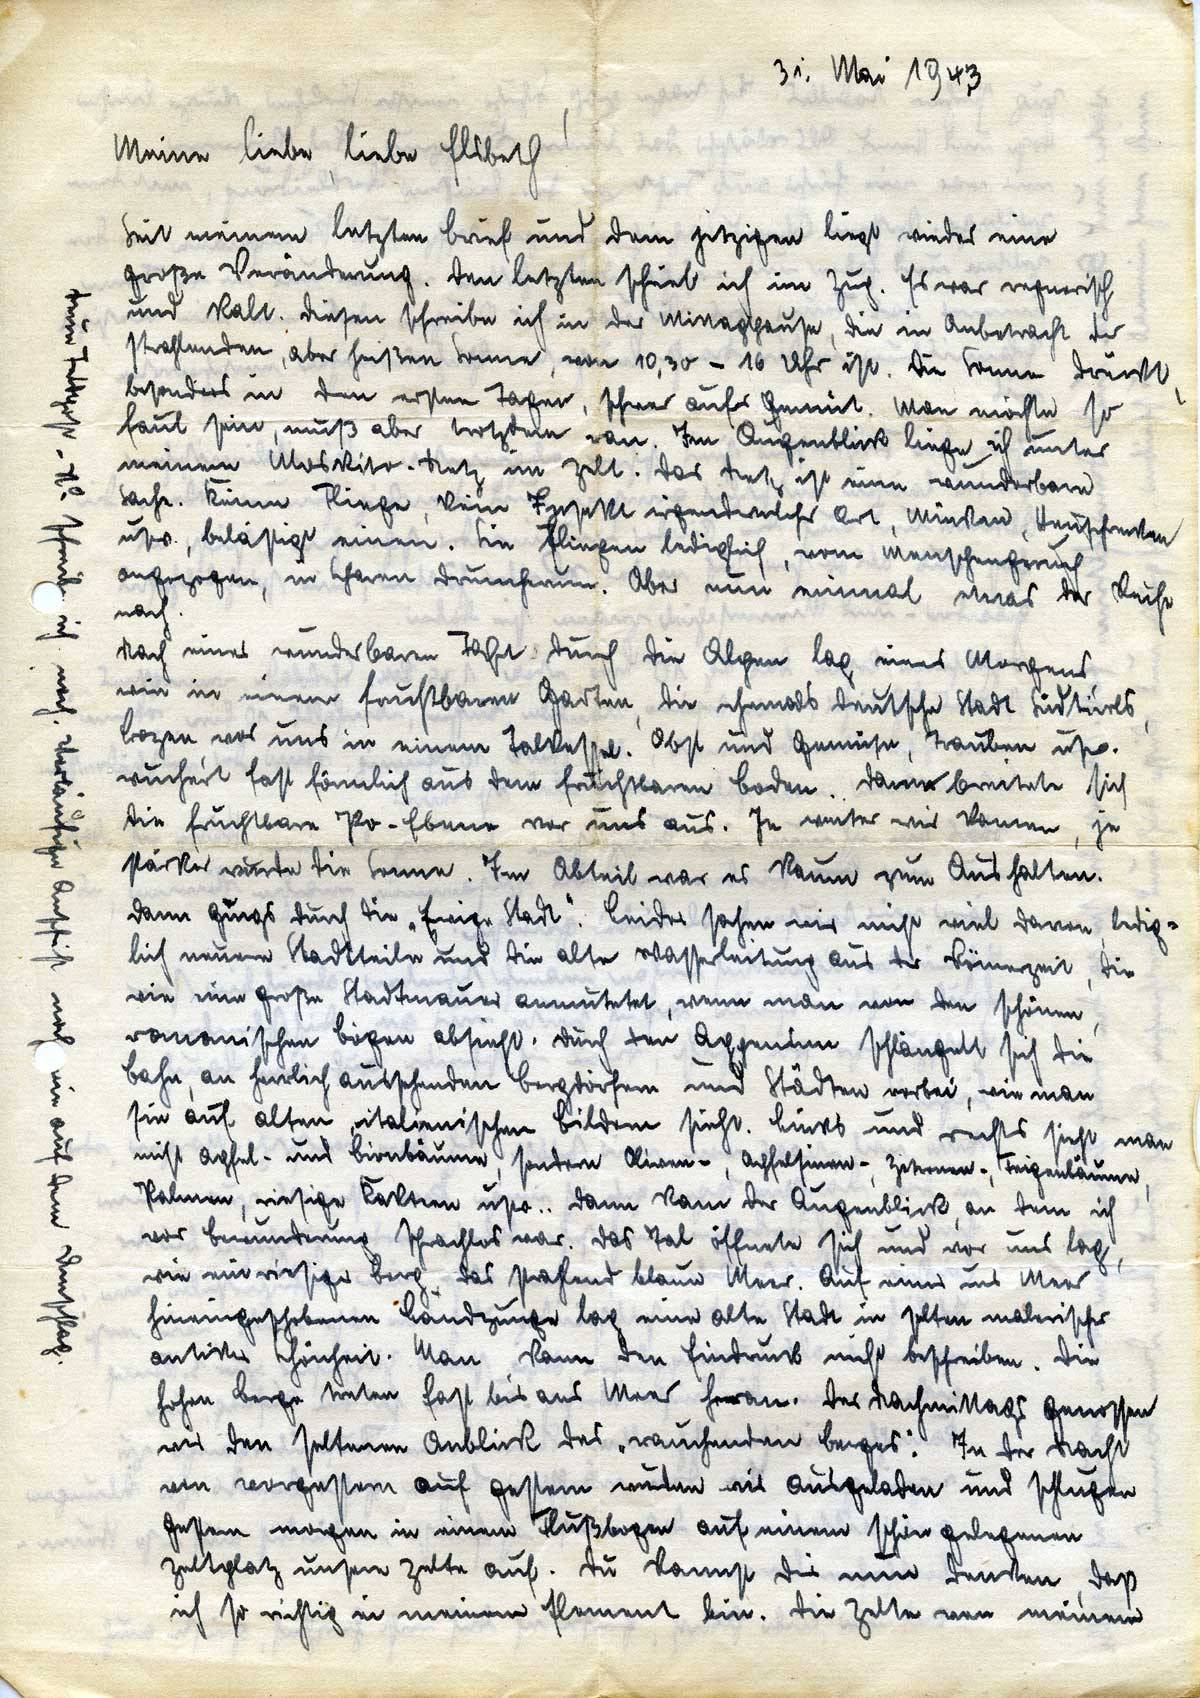 31. Mai 1943
Meine liebe, liebe Elsbeth!
Seit meinem letzten Brief und dem jetzigen liegt wieder eine
große Veränderung. Den letzten schrieb ich im Zug. Es war regnerisch
und kalt. Diesen schreibe ich in der Mittagspause, die in Anbetracht der
strahlenden, aber heißen Sonne, von 10,30 – 16 Uhr ist. Die Sonne drückt,
besonders in den ersten Tagen, schwer aufs Gemüt. Man möchte so
faul sein, muß aber trotzdem ran. Im Augenblick liege ich unter
meinem Moskito-Netz im Zelt. Das Netz ist eine wunderbare
Sache. Keine Fliege, kein Insekt irgendwelcher Art, Mücken, Heuschrecken
usw., belästigt einen. Sie fliegen lediglich, vom Menschengeruch
angezogen, in Scharen drumherum. Aber nun einmal etwas der Reihe
nach.
Nach einer wunderbaren Fahrt durch die Alpen lag eines Morgens,
wie in einem fruchtbaren Garten, die ehemals deutsche Stadt Südtirols,
Bozen vor uns in einem Talkessel. Obst und Gemüse, Trauben usw.
wuchert fast förmlich aus dem fruchtbaren Boden. Dann breitete sich
die fruchtbare Po-Ebene vor uns aus. Je weiter wir kamen, je
stärker wurde die Sonne. Im Abteil war es kaum zum Aushalten.
Dann gings durch die „Ewige Stadt“. Leider sahen wir nicht viel davon, ledig=
lich neuere Stadtteile und die alte Wasserleitung aus der Römerzeit, die
wie eine große Stadtmauer anmutetet, wenn man von den schönen,
romanischen Bögen absieht. Durch den Appenin schlängelt sich die
Bahn, an herrlich aussehenden Bergdörfern und Städten vorbei, wie man
sie auf alten italienischen Bildern sieht. Links und rechts sieht man
nicht Apfel- und Birnbäume, sondern Oliven-, Apfelsinen-, Zitronen-, Feigenbäume,
Palmen, riesige Kakteen usw.. Dann kam der Augenblick, an dem ich
vor Bewunderung sprachlos war. Das Tal öffnete sich und vor uns lag,
wie ein riesiger Berg, das strahlend blaue Meer. Auf einer ins Meer
hineingeschobenen Landzunge lag eine alte Stadt in selten malerischer
antiker Schönheit. Man kann den Eindruck nicht beschreiben. Die
hohen Berge treten fast bis ans Meer heran. Des Nachmittags genossen
wir den seltenen Anblick des „rauchenden Berges“. In der Nacht
von vorgestern auf gestern wurden wir ausgeladen und schlugen
gestern morgen in einem Flußbogen auf einem schön gelegenen
Zeltplatz unsere Zelte auf. Du kannst Dir nun denken, daß
ich so richtig in meinem Element bin. Die Zelte von meinem
Feldpost-Nr. schreibe ich noch. Vorläufige Anschrift noch wie auf dem Umschlag.